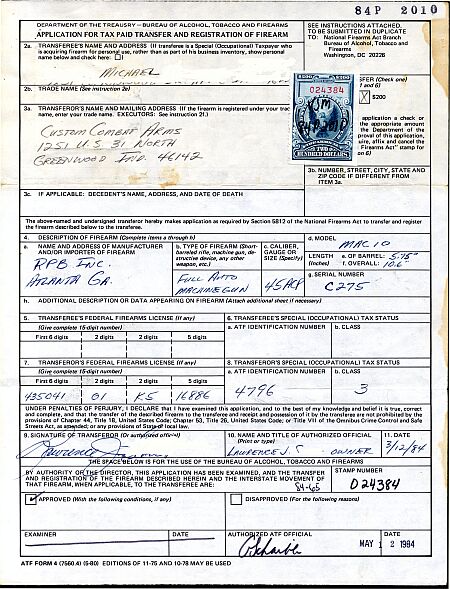 84P 2010
DEPARTMENT OF THE TREASURY – BUREAU OF ALCOHOL, TOBACCO AND FIREARMS
APPLICATION FOR TAX PAID TRANSFER AND REGISTRATION OF FIREARM
SEE INSTRUCTIONS ATTACHED.
TO BE SUBMITTED IN DUPLICATE
TO: National Firearms Act Branch
Bureau of Alcohol, Tobacco and
Firearms
Washington, DC 20226
2a. TRANSFEREE'S NAME AND ADDRESS (If transferee is a Special (Occupational) Taxpayer who
is acquiring firearm for personal use, rather than as part of his business inventory, show personal
name below and check here: )
MICHAEL
2b. TRADE NAME (See instruction 2e)
SFER (Check one)
1 and 6)
X $200
024384
3a. TRANSFEROR'S NAME AND MAILING ADDRESS (If the firearm is registered under your trade
name, enter your trade name. EXECUTORS: See instruction 21.)
CUSTOM COMBAT ARMS
1251 U.S. 31 NORTH
GREENWOOD IND. 46142
application a check or
the appropriate amount
the Department of the
proval of this application,
uire, affix and cancel the
Firearms Act" stamp for
on 6)
3b. NUMBER, STREET, CITY, STATE AND
ZIP CODE IF DIFFERENT FROM
ITEM 3a.
3c. IF APPLICABLE: DECEDENT'S NAME, ADDRESS, AND DATE OF DEATH
The above-named and undersigned transferor hereby makes application as required by Section 5812 of the National Firearms Act to transfer and register
the firearm described below to the transferee.
4. DESCRIPTION OF FIREARM (Complete items a through h)
a. NAME AND ADDRESS OF MANUFACTURER
AND/OR IMPORTER OF FIREARM
RPB INC.
ATLANTA GA.
b. TYPE OF FIREARM (Short-
barreled rifle, machine gun, de-
structive device, any other
weapon, etc.)
FULL AUTO
MACHINEGUN
c. CALIBER,
GAUGE OR
SIZE (Specify)
45 ACP
d. MODEL
MAC 10
LENGTH (Inches)
e. OF BARREL: 5.75"
f. OVERALL: 10.6"
g. SERIAL NUMBER
C275
h. ADDITIONAL DESCRIPTION OR DATA APPEARING ON FIREARM (Attach additional sheet if necessary)
5. TRANSFEREE'S FEDERAL FIREARMS LICENSE (If any)
(Give complete 15 digit number)
First 6 digits 2 digits 2 digits 5 digits
6. TRANSFEREE'S SPECIAL (OCCUPATIONAL) TAX STATUS
a. ATF IDENTIFICATION NUMBER b. CLASS
7. TRANSFEROR'S FEDERAL FIREARMS LICENSE (If any)
(Give complete 15-digit number)
First 6 digits 2 digits 2 digits 5 digits
435041 01 K5 16886
8. TRANSFEROR'S SPECIAL (OCCUPATIONAL) TAX STATUS
a. ATF IDENTIFICATION NUMBER b. CLASS
4796 3
UNDER PENALTIES OF PERJURY, I DECLARE that I have examined this application, and to the best of my knowledge and belief it is true, correct
and complete, and that the transfer of the described firearm to the transferee and receipt and possession of it by the transferee are not prohibited by the
provisions of Chapter 44, Title 18, United States Code; Chapter 53, Title 26, United States Code; or Title VII of the Omnibus Crime Control and Safe
Streets Act, as amended; or any provisions of State or local law.
9. SIGNATURE OF TRANSFEROR (Or authorized official)
10. NAME AND TITLE OF AUTHORIZED OFFICIAL
(Print or type)
LAURENCE J. OWNER
11. DATE
3/12/84
THE SPACE BELOW IS FOR THE USE OF THE BUREAU OF ALCOHOL, TOBACCO AND FIREARMS
BY AUTHORITY OF THE DIRECTOR, THIS APPLICATION HAS BEEN EXAMINED, AND THE TRANSFER
AND REGISTRATION OF THE FIREARM DESCRIBED HEREIN AND THE INTERSTATE MOVEMENT OF
THAT FIREARM, WHEN APPLICABLE, TO THE TRANSFEREE ARE:
84-65
STAMP NUMBER
D24384
APPROVED (With the following conditions, if any)
DISAPPROVED (For the following reasons)
EXAMINER DATE
AUTHORIZED ATF OFFICIAL DATE
MAY 2 1984
ATF FORM 4 (7560.4) (5-80) EDITIONS OF 11-75 AND 10-78 MAY BE USED